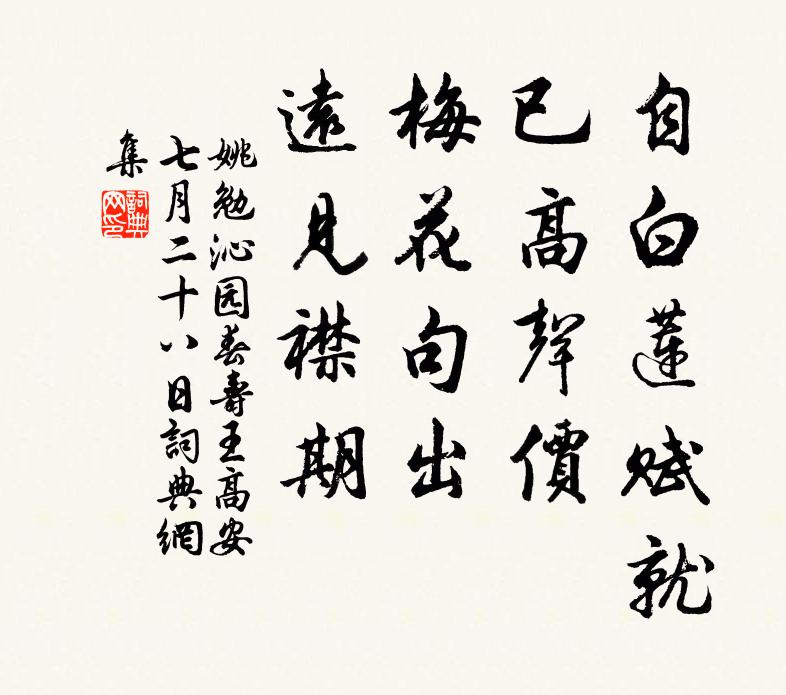 自白蓮賦就
已高聲價
梅花句出
遠見襟期
姚勉沁园春壽王高安
七月二十八日詞典網
集
詞典
网印